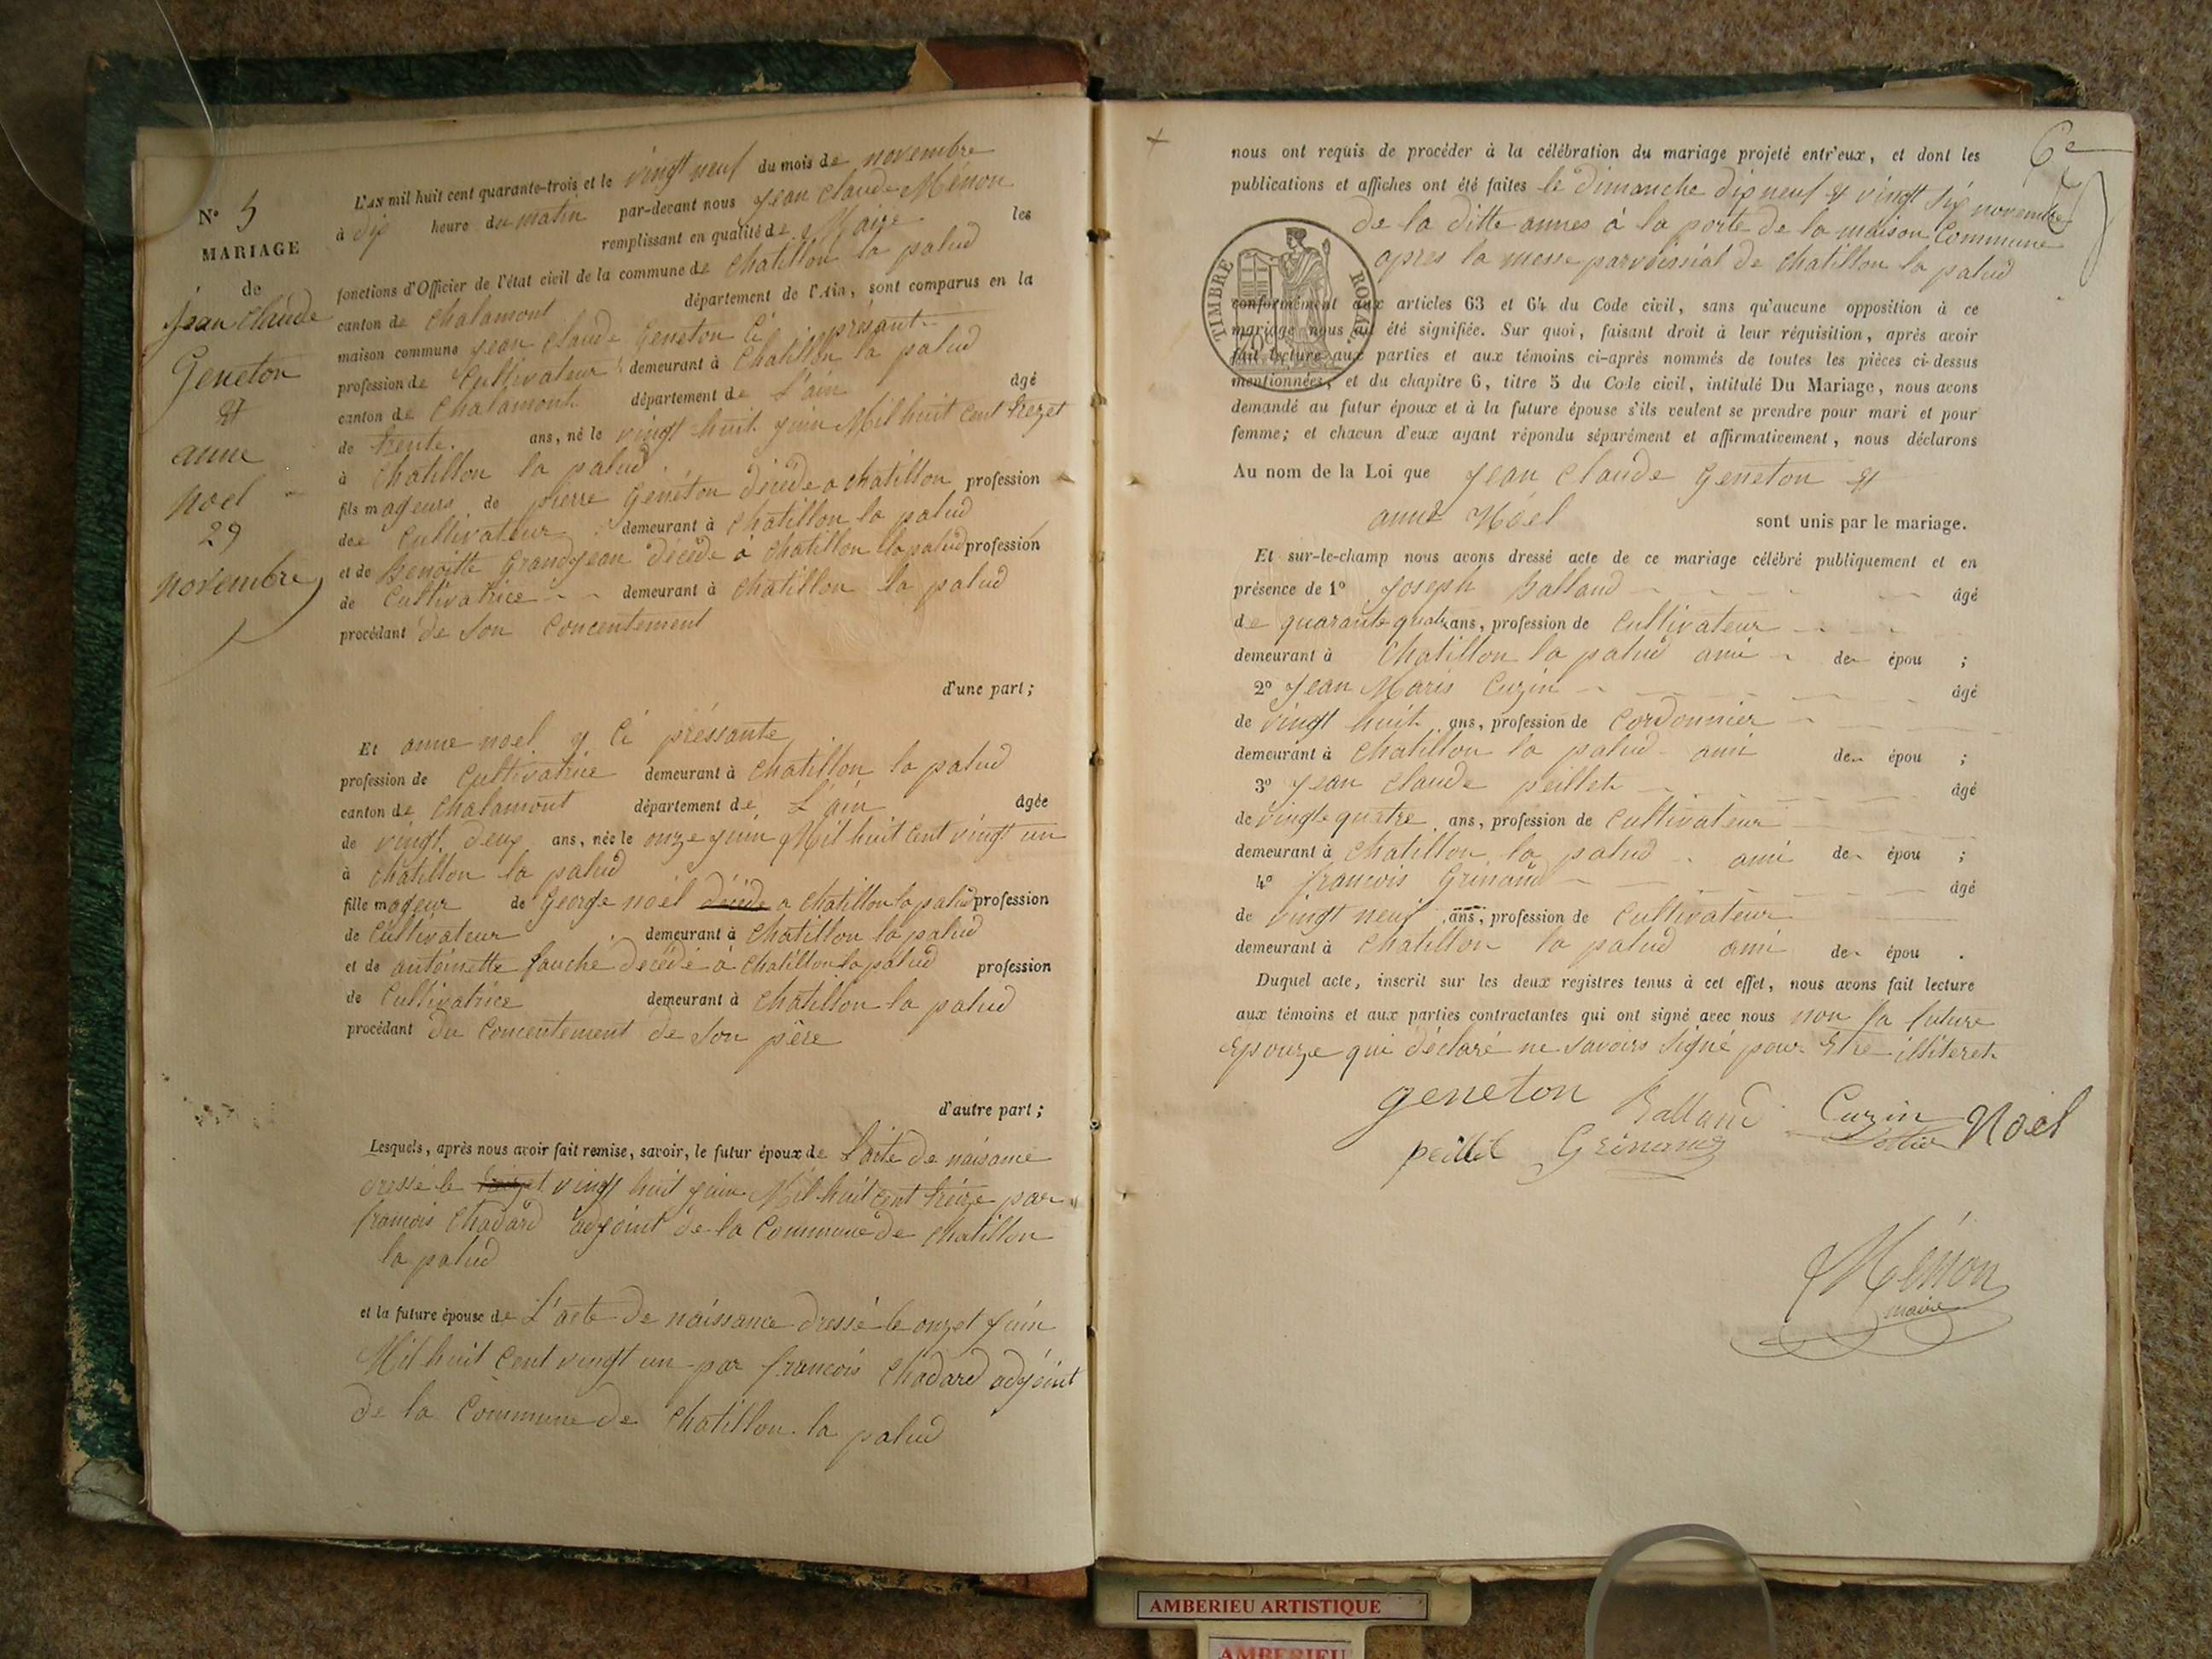 N° 5
MARIAGE
de
jean claude
Geneton
et
anne
noel
29
novembre
L'AN mil huit cent quarante-trois et le vingt neuf du mois de novembre
à dix heure du matin par-devant nous jean claude Ménon
remplissant en qualité de Maire les
fonctions d'Officier de l'état civil de la commune de chatillon la palud
canton de chalamont département de l'Ain, sont comparus en la
maison commune jean claude Geneton ci présant
profession de Cultivateur demeurant à Chatillon la palud
canton de Chalamont département de L'ain âgé
de trente ans, né le vingt huit juin Mil huit cent treizet
à chatillon la palud
fils majeurs de pierre Geneton décéde a chatillon profession
de Cultivateur demeurant à chatillon la palud
et de Benoitte Grandjean décéde à chatillon la palud profession
de Cultivatrice demeurant à chatillon la palud
procédant de son Concentement
d'une part;
Et anne noel y ci préssante
profession de Cultivatrice demeurant à chatillon la palud
canton de chalamont département de L'ain âgée
de vingt deux ans, née le onze juin Mil huit cent vingt un
à chatillon la palud
fille majeur de George noël décéde a chatillon la palud profession
de Cultivateur demeurant à chatillon la palud
et de antoinette fauché décédé à chatillon la palud profession
de Cultivatrice demeurant à chatillon la palud
procédant du Concentement de son père
d'autre part;
Lesquels, après nous avoir fait remise, savoir, le futur époux de L'acte de naisance
dressé le vingt huit juin Mil huit cent treize par
francois Chadard adjoint de la Commune de chatillon
la palud
et la future épouse de L'acte de naissance dressé le onzet juin
Mil huit Cent vingt un par francois Chadard adjoint
de la Commune de chatillon la palud
6e
nous ont requis de procéder à la célébration du mariage projeté entr'eux, et dont les
publications et affiches ont été faites le dimanche dix neuf & vingt six novembre
de la ditte annes à la porte de la maison Commune
apres la messe paroissial de chatillon la palud
TIMBRE ROYAL
conformément aux articles 63 et 64 du Code civil, sans qu'aucune opposition à ce
mariage nous ait été signifiée. Sur quoi, faisant droit à leur réquisition, après avoir
fait lecture aux parties et aux témoins ci-après nommés de toutes les pièces ci-dessus
mentionnées, et du chapitre 6, titre 5 du Code civil, intitulé Du Mariage, nous avons
demandé au futur époux et à la future épouse s'ils veulent se prendre pour mari et pour
femme; et chacun d'eux ayant répondu séparément et affirmativement, nous déclarons
Au nom de la Loi que jean claude Geneton et
anne Noel sont unis par le mariage.
Et sur-le-champ nous avons dressé acte de ce mariage célébré publiquement et en
présence de 1° joseph Balland âgé
de quarante quatre ans, profession de Cultivateur
demeurant à Chatillon la palud ami de épou ;
2° jean Marie Cuzin âgé
de vingt huit ans, profession de Cordonnier
demeurant à chatillon la palud ami de épou ;
3° jean claude peillet âgé
de vingte quatre ans, profession de Cultivateur
demeurant à chatillon la palud ami de épou ;
4° francois Grinand âgé
de vingt neuf ans, profession de Cultivateur
demeurant à chatillon la palud ami de épou .
Duquel acte, inscrit sur les deux registres tenus à cet effet, nous avons fait lecture
aux témoins et aux parties contractantes qui ont signé avec nous non la future
épouze qui déclaré ne savoirs signé pour être illiteret
geneton Balland Cuzin Noël
peillet Grinand
Ménon
maire
AMBERIEU ARTISTIQUE
AMBERIEU